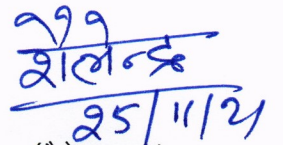 शैलेन्द्र
25/11/21